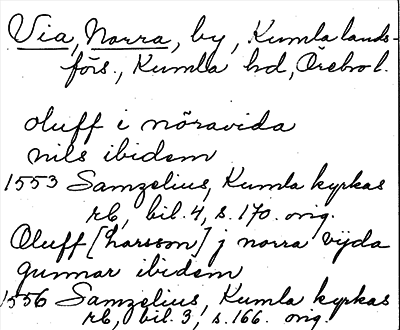 Via, Norra, by, Kumla lands-
förs., Kumla hd, Örebro l.
oluff i nöravida
nils ibidem
1553 Samzelius, Kumla kyrkas
rb, bil. 4, s. 170. orig.
Oluff [Larsson] j norra vijda
gunnar ibidem
1556 Samzelius, Kumla kyrkas
rb, bil. 3, s. 166. orig.